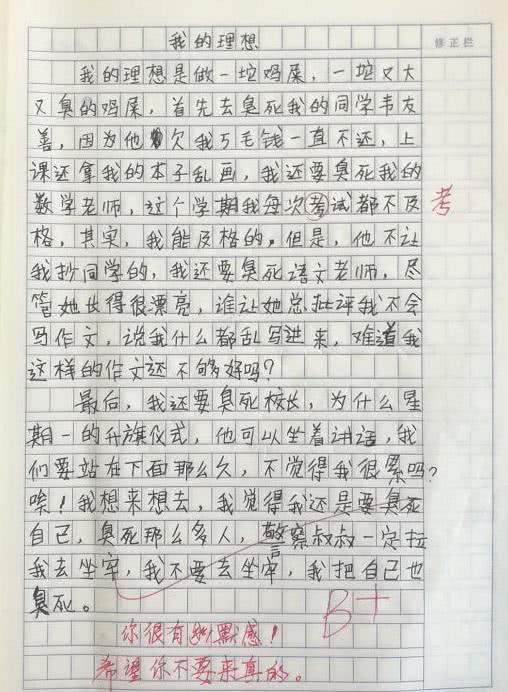 我的理想
修正栏
我的理想是做一坨鸡屎，一坨又大
又臭的鸡屎，首先去臭死我的同学韦友
善，因为他欠我5毛钱一直不还，上
课还拿我的本子乱画，我还要臭死我的
数学老师，这个学期我每次考试都不及
考
格，其实，我能及格的，但是，他不让
我抄同学的，我还要臭死语文老师，尽
管她长得很漂亮，谁让她总批评我不会
写作文，说我什么都乱写进来，难道我
这样的作文还不够好吗？
最后，我还要臭死校长，为什么星
期一的升旗仪式，他可以坐着讲话，我
们要站在下面那么久，不觉得我很累吗？
唉！我想来想去，我觉得我还是要臭死
自己，臭死那么多人，警察叔叔一定拉
我去坐牢，我不要去坐牢，我把自己也
臭死。
B+
你很有幽默感！
希望你不要来真的。